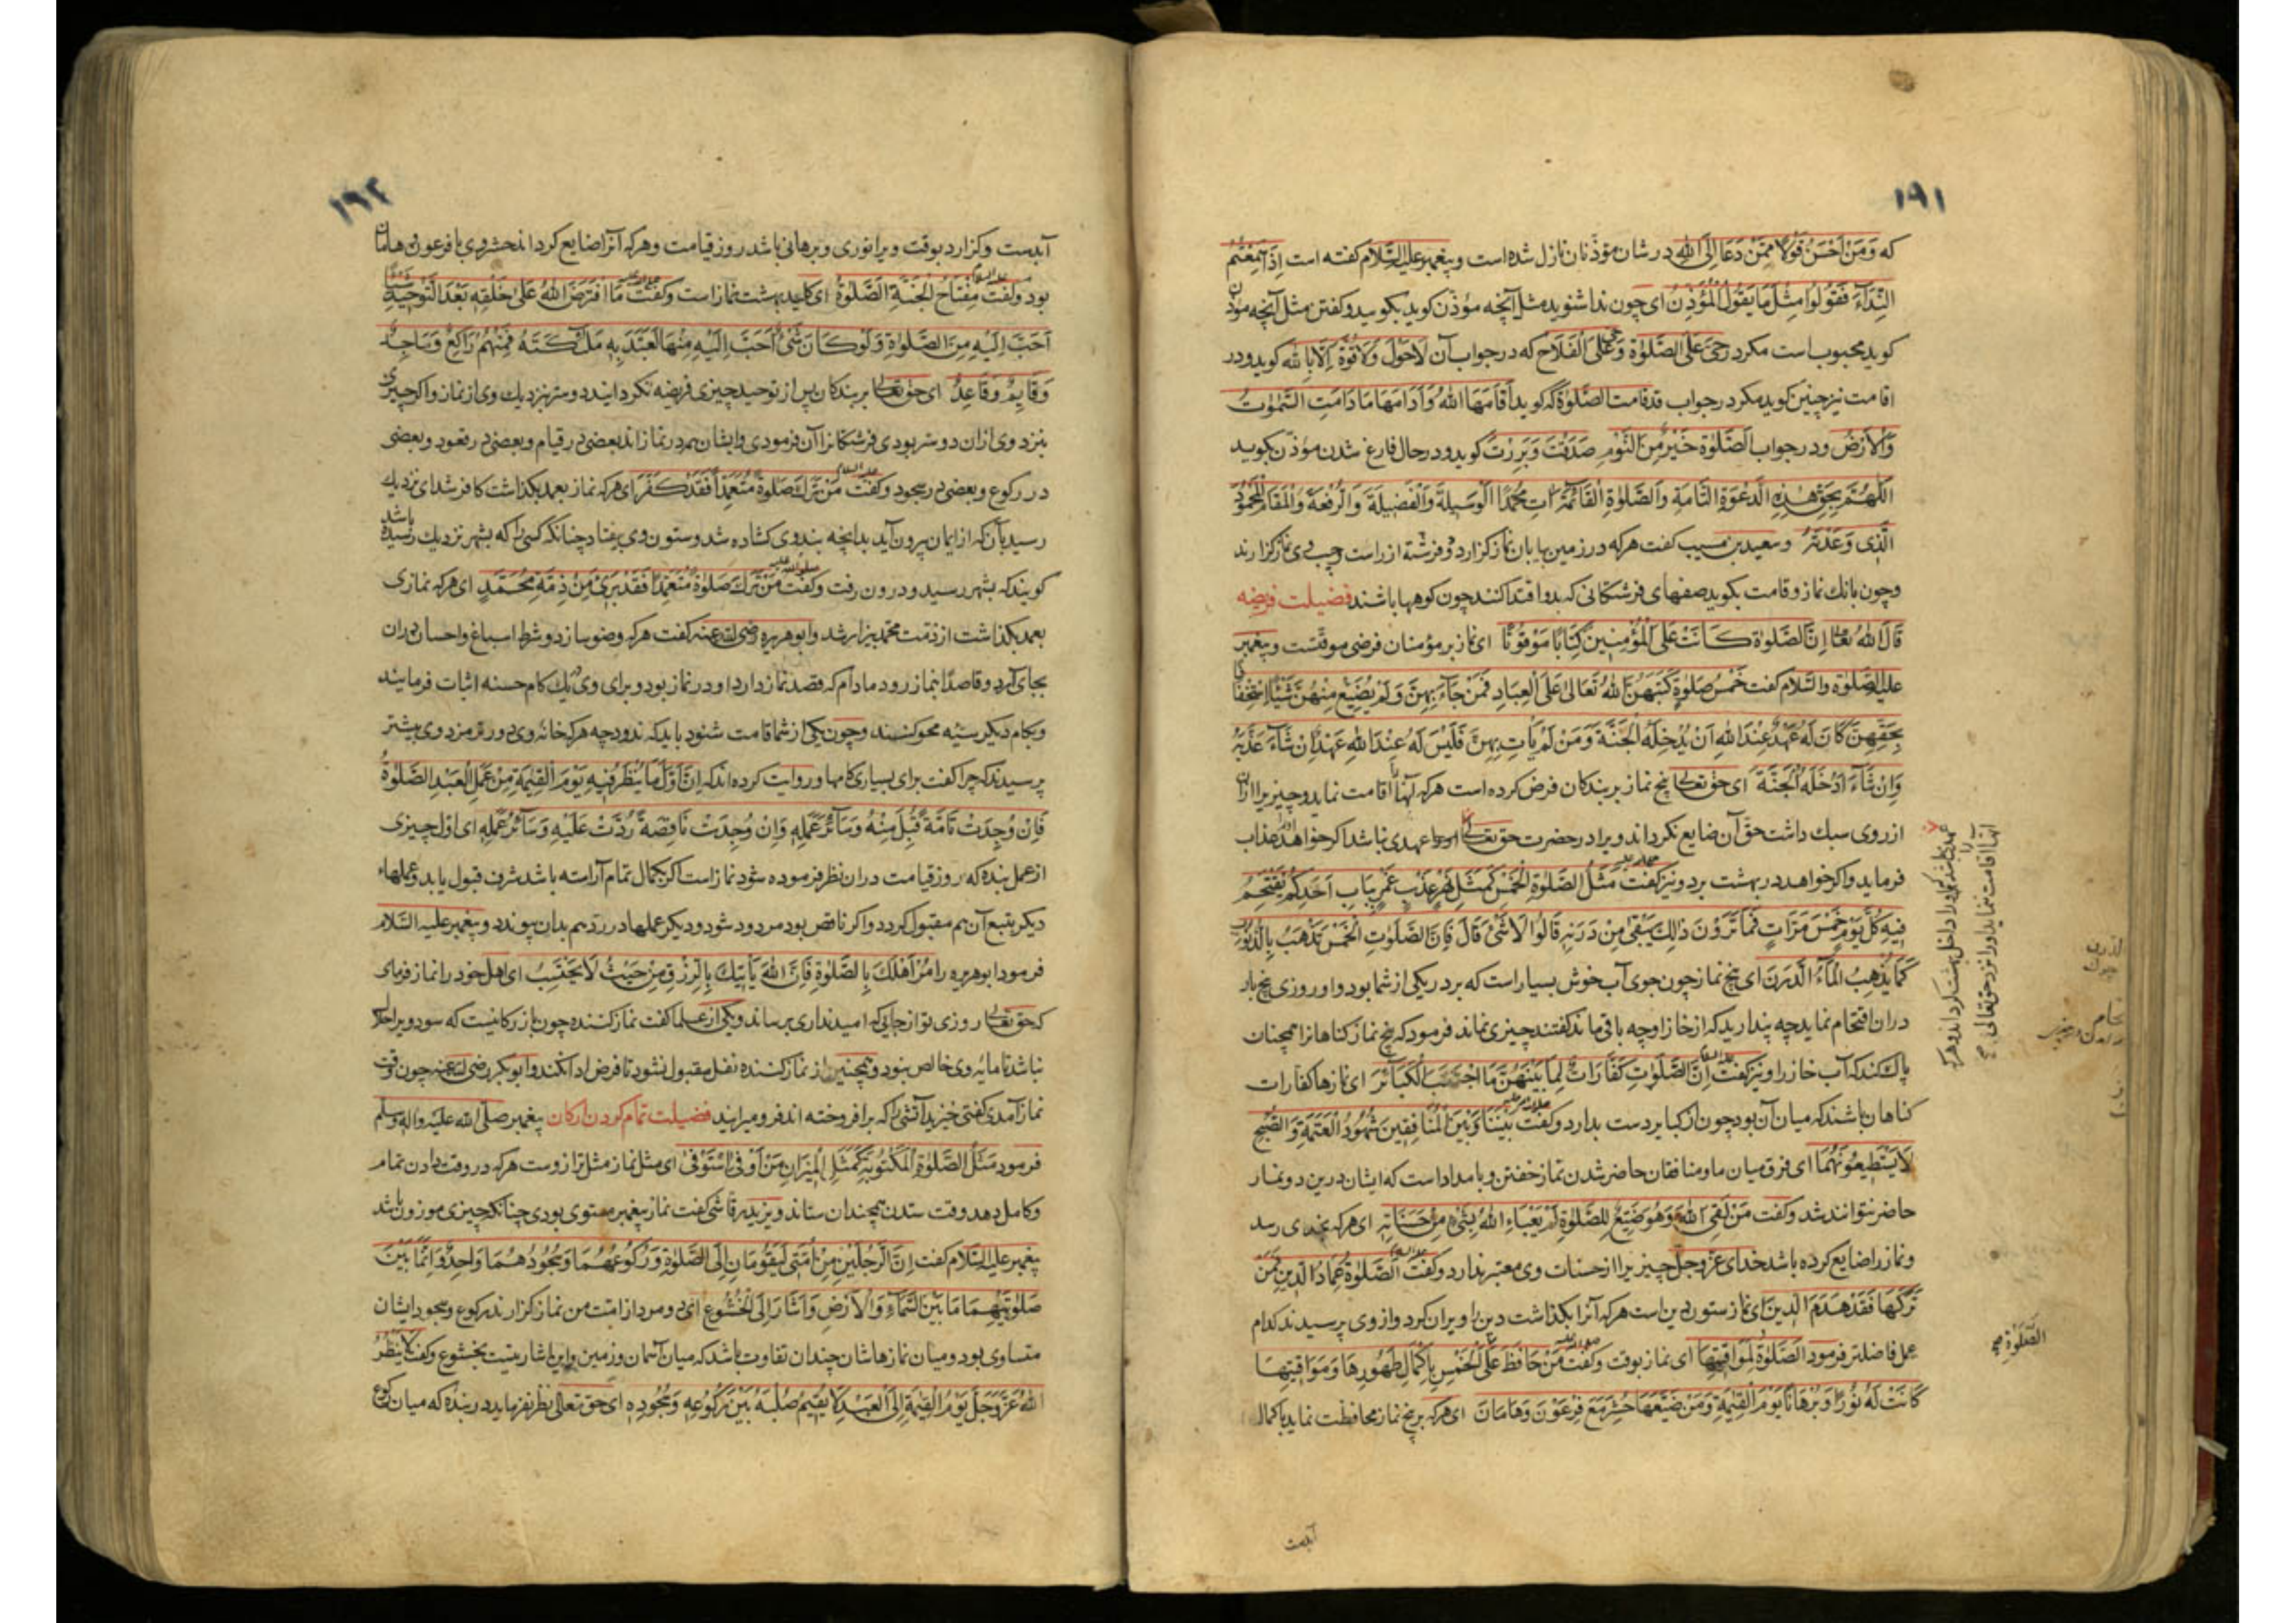 ۱۹۱
که وَمَنْ اَحْسَنُ قَوْلًا مِمَّنْ دَعَا اِلَی اللهِ در شان مؤذنان نازل شده است و پیغمبر علیه السّلام کفته است اِذَا سَمِعْتُمُ
النِّدَآءَ فَقُولُوا مِثْلَ مَا یَقُولُ الْمُؤَذِّنُ ای چون ندا شنوید مثل آنچه مؤذن کوید بکویید و کفتن مثل آنچه مؤذن
کوید محبوب است مکر در حَیَّ عَلَی الصَّلٰوةِ وَ حَیَّ عَلَی الْفَلَاح که در جواب آن لَاحَوْلَ وَلَاقُوَّةَ اِلَّا بِالله کوید و در
اقامت نیز چنین کوید مکر در جواب قدقامت الصَّلٰوة که کوید اَقَامَهَا اللهُ وَ اَدَامَهَا مَا دَامَتِ السَّمٰوٰتُ
وَالْاَرْضُ و در جواب اَلصَّلٰوةُ خَیْرٌ مِنَ النَّوْمِ صَدَقْتَ وَ بَرِرْتَ کوید و در حال فارغ شدن مؤذن بکوید
اَللّٰهُمَّ بِحَقِّ هٰذِهِ الدَّعْوَةِ التَّامَّةِ وَالصَّلٰوةِ الْقَائِمَةِ اٰتِ مُحَمَّدًا الْوَسِیلَةَ وَالْفَضِیلَةَ وَالرِّفْعَةَ وَالْمَقَامَ الْمَحْمُودَ
الَّذِی وَعَدْتَهُ و سعید بن مسیب کفت هرکه در زمین بیابان نماز کزارد دو فرشته از راست و چپ وی نماز کزارند
و چون بانك نماز و قامت بکوید صفهای فرشتکانی که بدو اقتدا کنند چون کوهها باشند فضیلت فریضه
قَالَ اللهُ تعالی اِنَّ الصَّلٰوةَ کَانَتْ عَلَی الْمُؤْمِنِینَ کِتَابًا مَوْقُوتًا ای نماز بر مؤمنان فرضی موقتست و پیغمبر
علیه الصلوة والسَّلام کفت خَمْسُ صَلَوٰةٍ کَتَبَهُنَّ اللهُ تَعَالٰی عَلَی الْعِبَادِ فَمَنْ جَآءَ بِهِنَّ وَ لَمْ یُضَیِّعْ مِنْهُنَّ شَیْئًا اسْتِخْفَافًا
بِحَقِّهِنَّ کَانَ لَهُ عَهْدٌ عِنْدَ اللهِ اَنْ یُدْخِلَهُ الْجَنَّةَ وَ مَنْ لَمْ یَأْتِ بِهِنَّ فَلَیْسَ لَهُ عِنْدَ اللهِ عَهْدٌ اِنْ شَآءَ عَذَّبَهُ
وَاِنْ شَآءَ اَدْخَلَهُ الْجَنَّةَ ای حق تعالی پنج نماز بر بندکان فرض کرده است هرکه آنها را اقامت نماید و چیزیرا ازان
از روی سبك داشت حق آن ضایع نکرداند ویرا در حضرت حق تعالی عهدی باشد اکر خواهد عذاب
فرماید و اکر خواهد در بهشت برد و نیز کفت مَثَلُ الصَّلٰوةِ الْخَمْسِ کَمَثَلِ نَهْرٍ عَذْبٍ غَمْرٍ بِبَابِ اَحَدِکُمْ یَقْتَحِمُ
فِیهِ کُلَّ یَوْمٍ خَمْسَ مَرَّاتٍ فَمَا تَرَوْنَ ذٰلِكَ یَبْقٰی مِنْ دَرَنِهِ قَالُوا لَا شَیْءَ قَالَ فَاِنَّ الصَّلَوٰتِ الْخَمْسَ تَذْهَبُ بِالذُّنُوبِ
کَمَا یُذْهِبُ الْمَآءُ الدَّرَنَ ای پنج نماز چون جوی آب خوش بسیار است که بر در یکی از شما بود و او روزی پنج بار
دران اقتحام نماید چه پندارید که از خاز او چه باقی ماند کفتند چیزی نماند فرمود که پنج نماز کناهانرا همچنان
پاك کند که آب خاز را و نیز کفت اِنَّ الصَّلَوٰتِ کَفَّارَاتٌ لِمَا بَیْنَهُنَّ مَا اجْتَنَبَ الْکَبَآئِرَ ای نمازها کفارات
کناهان باشند که میان آن بود چون از کبایر دست بدارد و کفت بَیْنَنَا وَ بَیْنَ الْمُنَافِقِینَ شُهُودُ الْعَتَمَةِ وَالصُّبْحِ
لَا یَسْتَطِیعُونَهُمَا ای فرق میان ما و منافقان حاضر شدن نماز خفتن و بامداد است که ایشان درین دو نماز
حاضر نتوانند شد و کفت مَنْ لَقِیَ اللهَ وَهُوَ مُضَیِّعٌ لِلصَّلٰوةِ لَمْ یَعْبَاءِ اللهُ بِشَیْءٍ مِنْ حَسَنَاتِهِ ای هرکه بخدای رسد
و نماز را ضایع کرده باشد خدای عزّوجلّ چیزیرا از حسنات وی معتبر ندارد و کفت اَلصَّلٰوةُ عِمَادُ الدِّینِ فَمَنْ
تَرَکَهَا فَقَدْ هَدَمَ الدِّینَ ای نماز ستون دین است هرکه آنرا بکذاشت دین را ویران کرد و از وی پرسیدند کدام
عمل فاضلتر فرمود اَلصَّلٰوةُ لِمَوَاقِیتِهَا ای نماز بوقت و کفت مَنْ حَافَظَ عَلَی الْخَمْسِ بِاِکْمَالِ طَهُورِهَا وَ مَوَاقِیتِهَا
کَانَتْ لَهُ نُورًا وَ بُرْهَانًا یَوْمَ الْقِیٰمَةِ وَمَنْ ضَیَّعَهَا حُشِرَ مَعَ فِرْعَوْنَ وَ هَامَانَ ای هرکه بر پنج نماز محافظت نماید باکمال
آبدست
الصَّلٰوةِ
الدرن
چرك
۱۹۲
آبدست و کزارد بوقت ویرا نوری و برهانی باشد روز قیامت و هرکه آنرا ضایع کرداند حشر وی با فرعون و هامان
بود و کفت مِفْتَاحُ الْجَنَّةِ الصَّلٰوةُ ای کلید بهشت نماز است و کفت مَا افْتَرَضَ اللهُ عَلٰی خَلْقِهِ بَعْدَ التَّوْحِیدِ شَیْئًا
اَحَبَّ اِلَیْهِ مِنَ الصَّلٰوةِ وَ لَوْ کَانَ شَیْءٌ اَحَبَّ اِلَیْهِ مِنْهَا لَتَعَبَّدَ بِهِ مَلٰٓئِکَتَهُ فَمِنْهُمْ رَاکِعٌ وَ سَاجِدٌ
وَ قَایِمٌ وَ قَاعِدٌ ای حق تعالی بر بندکان پس از توحید چیزی فریضه نکردانید دوستر نزدیك وی از نماز و اکر چیزی
نزد وی ازان دوستر بودی فرشتکانرا آن فرمودی و ایشان همه در نمازاند بعضی در قیام و بعضی در قعود و بعضی
در رکوع و بعضی در سجود و کفت مَنْ تَرَكَ صَلٰوةً مُتَعَمِّدًا فَقَدْ کَفَرَ ای هرکه نماز بعمد بکذاشت کافر شد ای نزدیك
رسید بآن که از ایمان بیرون آید بدانچه بند وی کشاده شد و ستون وی بیفتاد چنانکه کسی را که بشهر نزدیك رسیده باشد
کویند که بشهر رسید و درون رفت و کفت مَنْ تَرَكَ صَلٰوةً مُتَعَمِّدًا فَقَدْ بَرِیَٔ مِنْ ذِمَّةِ مُحَمَّدٍ ای هرکه نمازی
بعمد بکذاشت از ذمت محمد بیزار شد و ابوهریره رضی الله عنه کفت هرکه وضو سازد و شرط اسباغ و احسان دران
بجای آرد و قاصدًا بنماز رود مادام که قصد نماز دارد او در نماز بود و برای وی بیك کام حسنه اثبات فرمایند
و بکام دیکر سیئه محو کنند و چون یکی از شما قامت شنود باید که ندود چه هرکه خانه وی دورتر مزد وی بیشتر
پرسیدند که چرا کفت برای بسیاری کامها و روایت کرده اند که اِنَّ اَوَّلَ مَا یُنْظَرُ فِیهِ یَوْمَ الْقِیٰمَةِ مِنْ عَمَلِ الْعَبْدِ الصَّلٰوةُ
فَاِنْ وُجِدَتْ تَامَّةً قُبِلَ مِنْهُ وَ سَآئِرُ عَمَلِهِ وَاِنْ وُجِدَتْ نَاقِصَةً رُدَّتْ عَلَیْهِ وَ سَآئِرُ عَمَلِهِ ای اوّل چیزی
از عمل بنده که روز قیامت دران نظر فرموده شود نماز است اکر بکمال تمام آراسته باشد شرف قبول یابد و عملهاء
دیکر بتبع آن هم مقبول کردد و اکر ناقص بود مردود شود و دیکر عملها در رد هم بدان پیوندد و پیغمبر علیه السّلام
فرمود ابوهریره را مُرْ اَهْلَكَ بِالصَّلٰوةِ فَاِنَّ اللهَ یَأْتِیكَ بِالرِّزْقِ مِنْ حَیْثُ لَا یَحْتَسِبُ ای اهل خود را نماز فرمای
که حق تعالی روزی تو از جایی که امید نداری برساند و یکی از علما کفت نماز کننده چون بازرکانیست که سود ویرا حاصل
نباشد تا مایه وی خالص نبود و همچنین از نماز کننده نفل مقبول نشود تا فرض ادا نکند و ابوبکر رضی الله عنه چون وقت
نماز آمدی کفتی خیزید آتشی را که برافروخته اند فرو میرانید فضیلت تمام کردن ارکان پیغمبر صلّی الله علیه واله وسلم
فرمود مَثَلُ الصَّلٰوةِ الْمَکْتُوبَةِ کَمَثَلِ الْمِیزَانِ مَنْ اَوْفٰی اسْتَوْفٰی ای مثل نماز مثل ترازوست هرکه در وقت دادن تمام
و کامل دهد وقت ستدن همچندان ستاند و یزید رقاشی کفت نماز پیغمبر مستوی بودی چنانکه چیزی موزون باشد
پیغمبر علیه السّلام کفت اِنَّ الرَّجُلَیْنِ مِنْ اُمَّتِی لَیَقُومَانِ اِلَی الصَّلٰوةِ وَ رُکُوعُهُمَا وَ سُجُودُهُمَا وَاحِدٌ وَ اِنَّمَا بَیْنَ
صَلٰوتَیْهِمَا مَا بَیْنَ السَّمَآءِ وَالْاَرْضِ وَ اَشَارَ اِلَی الْخُشُوعِ ای دو مرد از امّت من نماز کزارند رکوع و سجود ایشان
متساوی بود و میان نمازهاشان چندان تفاوت باشد که میان آسمان و زمین و این اشارتیست بخشوع و کفت لَا یَنْظُرُ
اللهُ عَزَّوَجَلَّ یَوْمَ الْقِیٰمَةِ اِلَی الْعَبْدِ لَا یُقِیمُ صُلْبَهُ بَیْنَ رُکُوعِهِ وَ سُجُودِهِ ای حق تعالی نظر نفرماید در بنده که میان رکوع